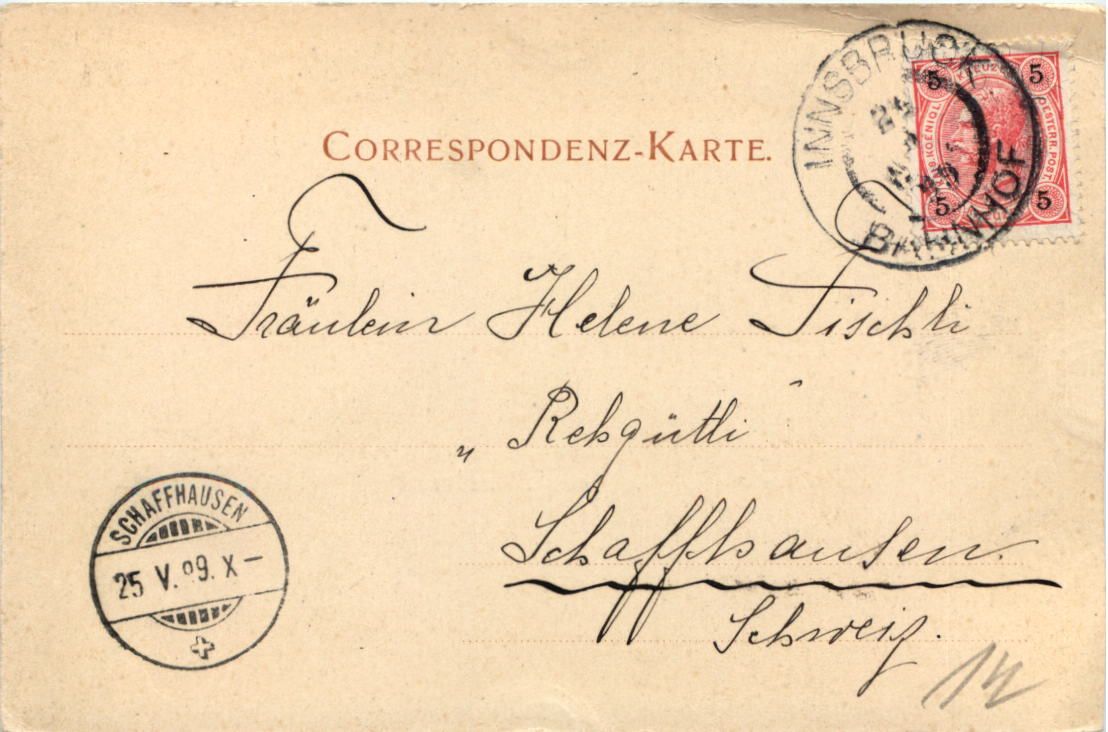 CORRESPONDENZ-KARTE.
INNSBRUCK
BAHNHOF
5 KREUZER 5
KAIS. KOENIGL. OESTERR. POST.
5 5
Fräulein Helene Tischli
„Rebgütli"
Schaffhausen.
Schweiz.
SCHAFFHAUSEN
25 V. 99. X–